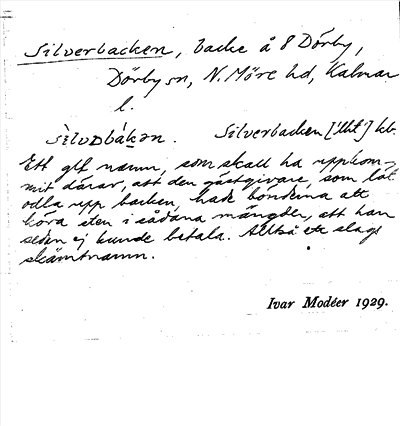 Silverbacken, backe å 8 Dörby,
Dörby sn, N. Möre hd, Kalmar
l.
sìlvǝrbákǝn. Silverbacken ['lht'] kb.
Ett glt namn, som skall ha uppkom-
mit därav, att den gästgivare, som lät
odla upp backen, hade bönderna att
köra sten i sådana mängder, att han
sedan ej kunde betala. Alltså ett slags
skämtnamn.
Ivar Modéer 1929.